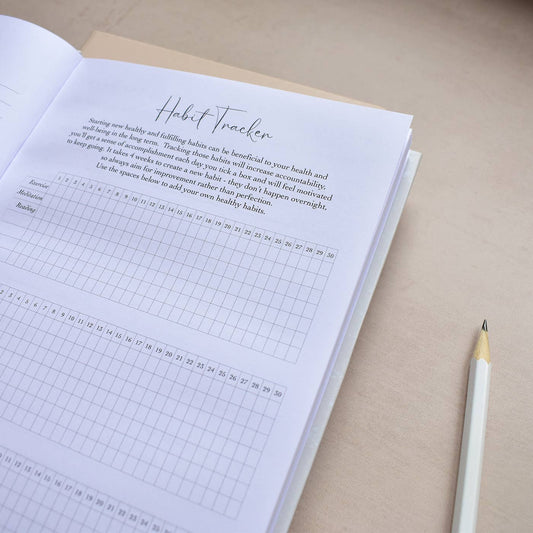 Habit Tracker
Starting new healthy and fulfilling habits can be beneficial to your health and
well-being in the long term. Tracking those habits will increase accountability,
you'll get a sense of accomplishment each day you tick a box and will feel motivated
to keep going. It takes 4 weeks to create a new habit - they don't happen overnight,
so always aim for improvement rather than perfection.
Use the spaces below to add your own healthy habits.
1 2 3 4 5 6 7 8 9 10 11 12 13 14 15 16 17 18 19 20 21 22 23 24 25 26 27 28 29 30
Exercise
Meditation
Reading
2 3 4 5 6 7 8 9 10 11 12 13 14 15 16 17 18 19 20 21 22 23 24 25 26 27 28 29 30